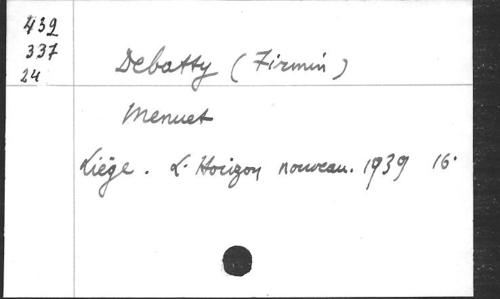 439
337
24
Debatty (Firmin)
Menuet
Liège. L'Horizon nouveau. 1939 16°